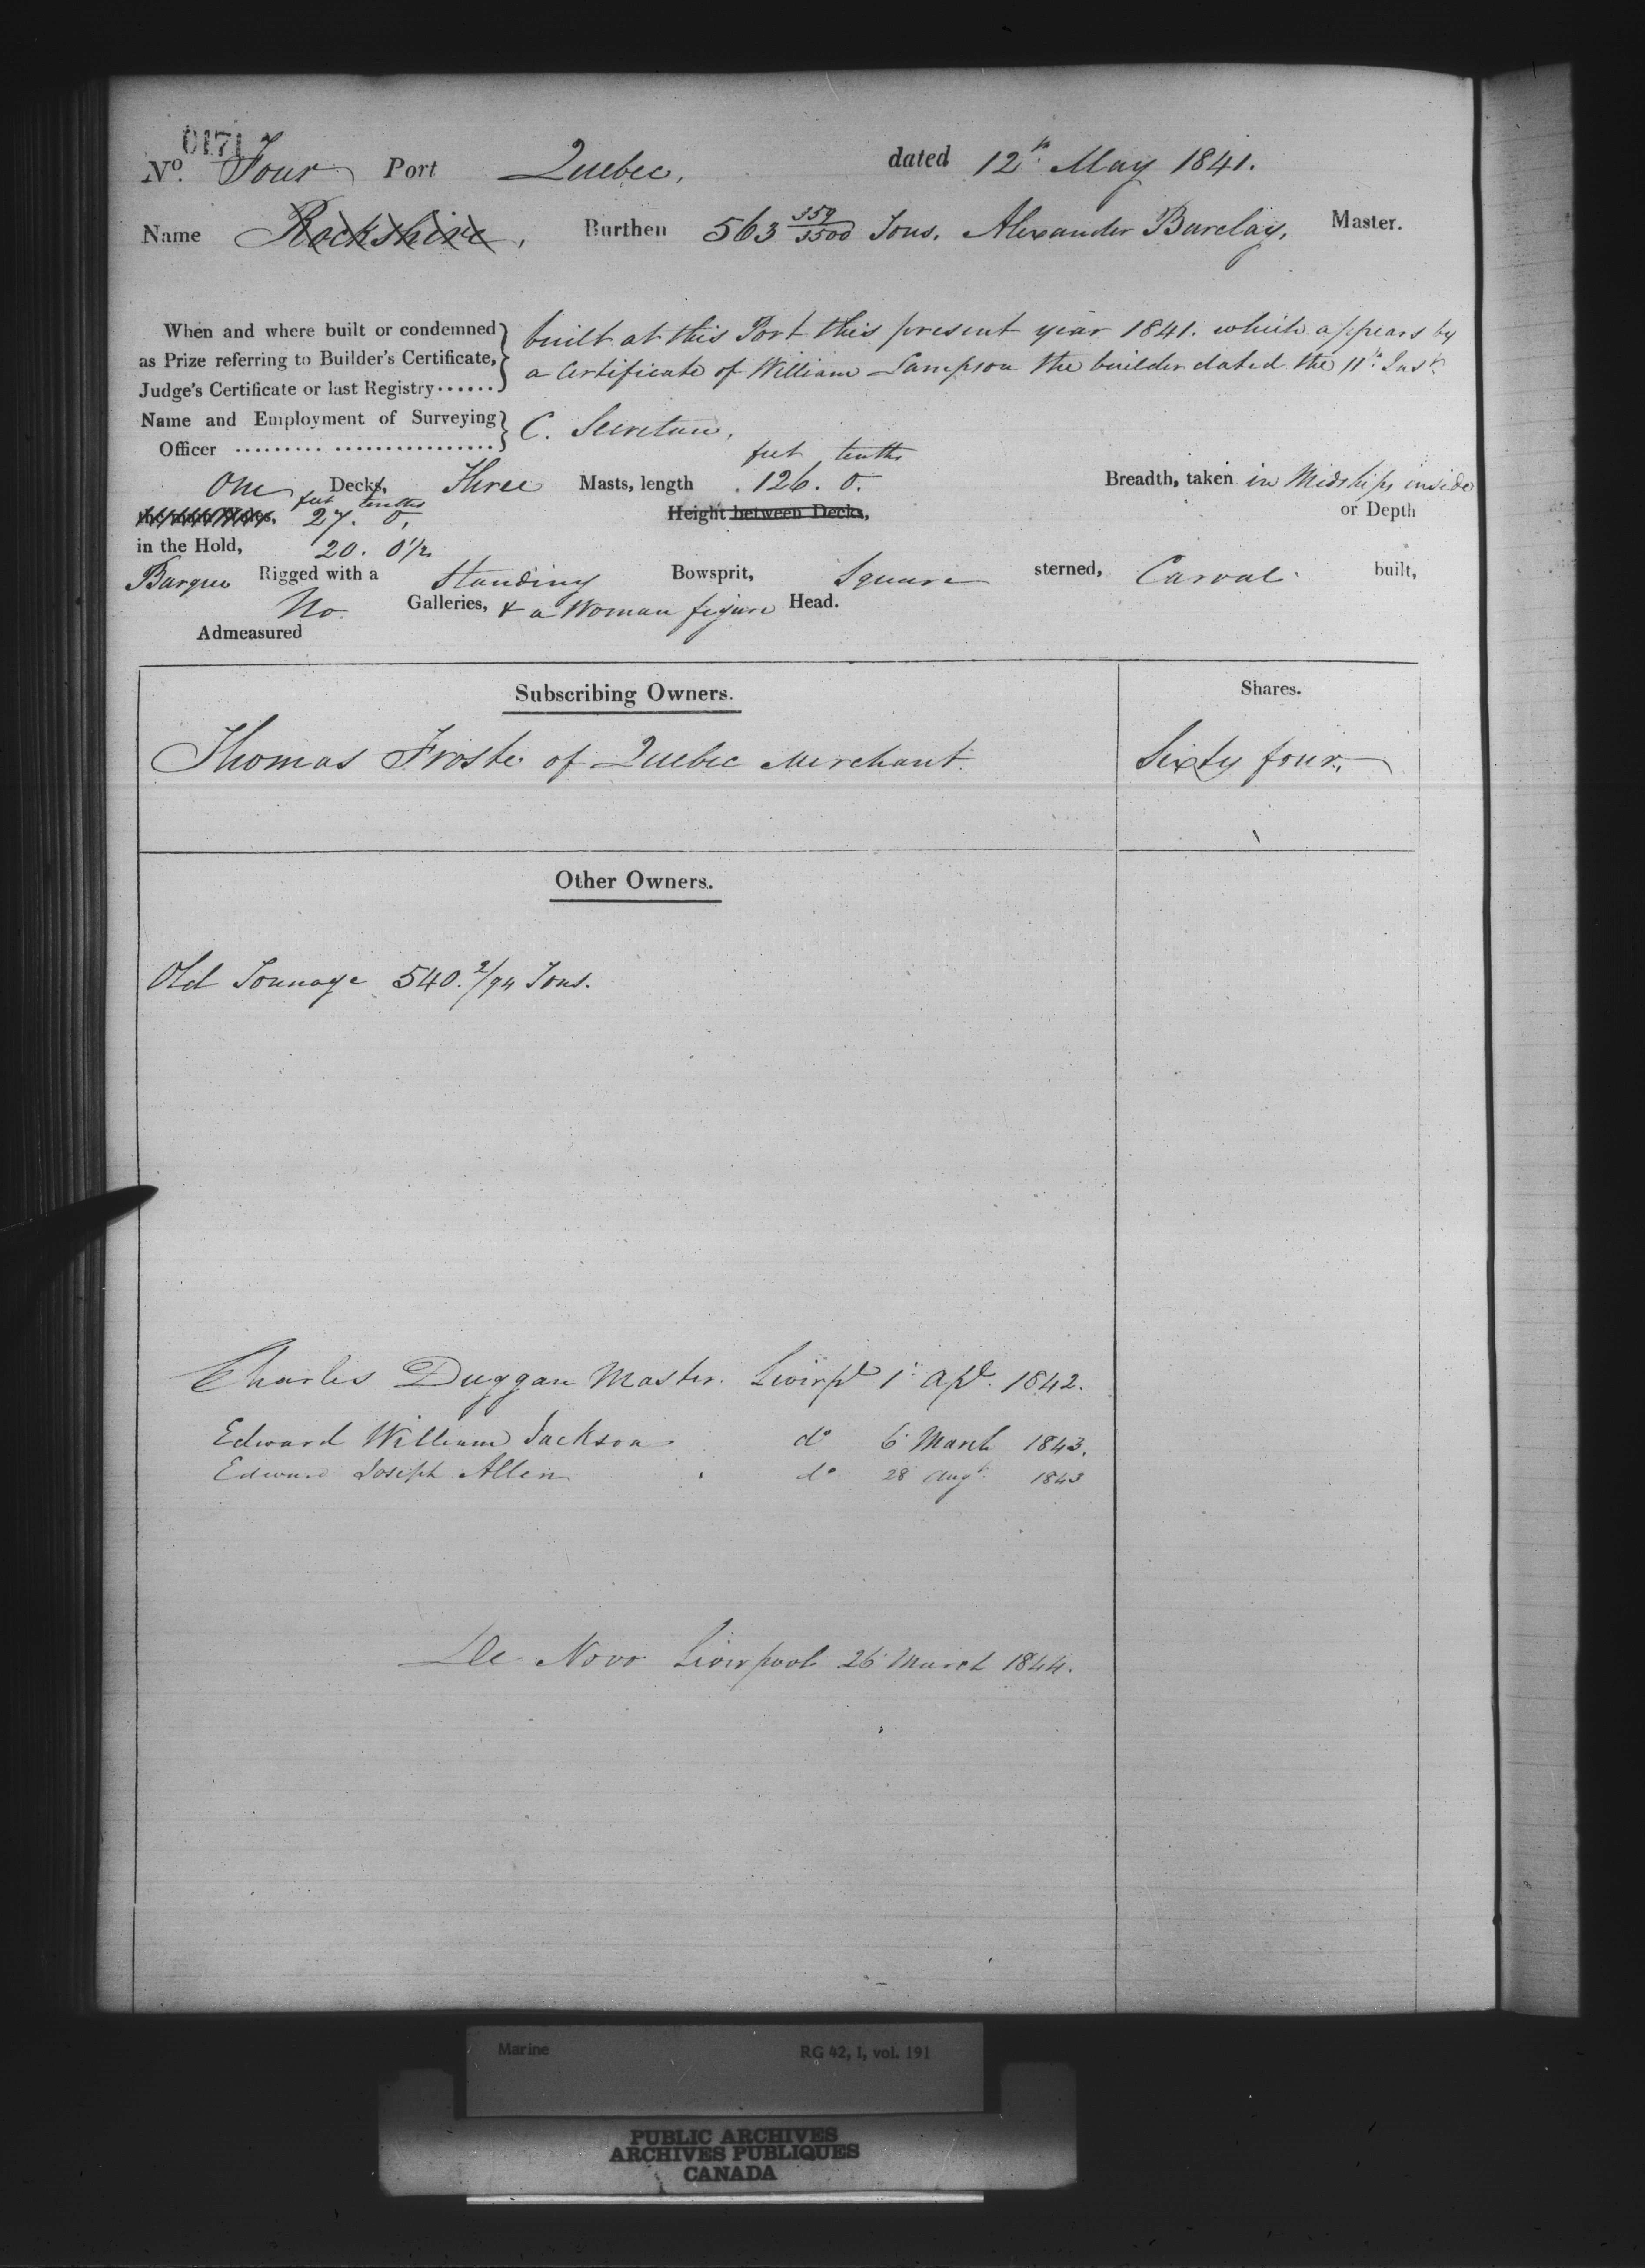 0171
No. Four Port Quebec, dated 12th May 1841.
Name Rockshire, Burthen 563 359/3500 Tons, Alexander Barclay, Master.
When and where built or condemned as Prize referring to Builder's Certificate, Judge's Certificate or last Registry...... built at this Port this present year 1841. which appears by
a Certificate of William Lampson the builder dated the 11th Inst.
Name and Employment of Surveying Officer ......... ................. C. Secretan,
feet tenths
One Decks, Three Masts, length 126. 0. Breadth, taken in Midships inside
feet tenths
27. 0, Height between Decks, or Depth
in the Hold, 20. 0 1/2
Barque Rigged with a Standing Bowsprit, Square sterned, Carvel built,
No Galleries, & a Woman figure Head.
Admeasured
Subscribing Owners. Shares.
Thomas Froste of Quebec Merchant. Sixty four,
Other Owners.
Old Tonnage 540. 2/94 Tons.
Charles Duggan Master. Liverpl 1 Apl. 1842.
Edward William Jackson do 6 March 1843.
Edward Joseph Allen do 28 Augt 1843
De Novo Liverpool 26 March 1844.
Marine RG 42, I, vol. 191
PUBLIC ARCHIVES
ARCHIVES PUBLIQUES
CANADA